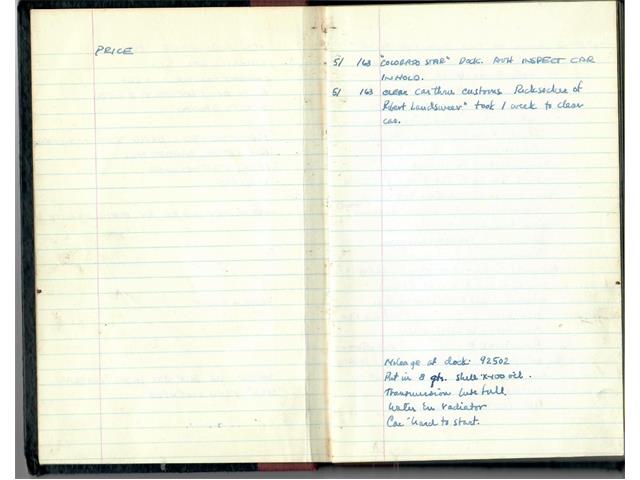 PRICE
5/ 163 "COLORADO STAR" DOCK. INSPECT CAR
IN HOLD.
5/ 163 clear car thru customs of
Robert took 1 week to clear
car.
Mileage at dock: 92502
Put in 8 qts. Shell X-100 oil.
Transmission lube full.
Water in radiator
Car hard to start.